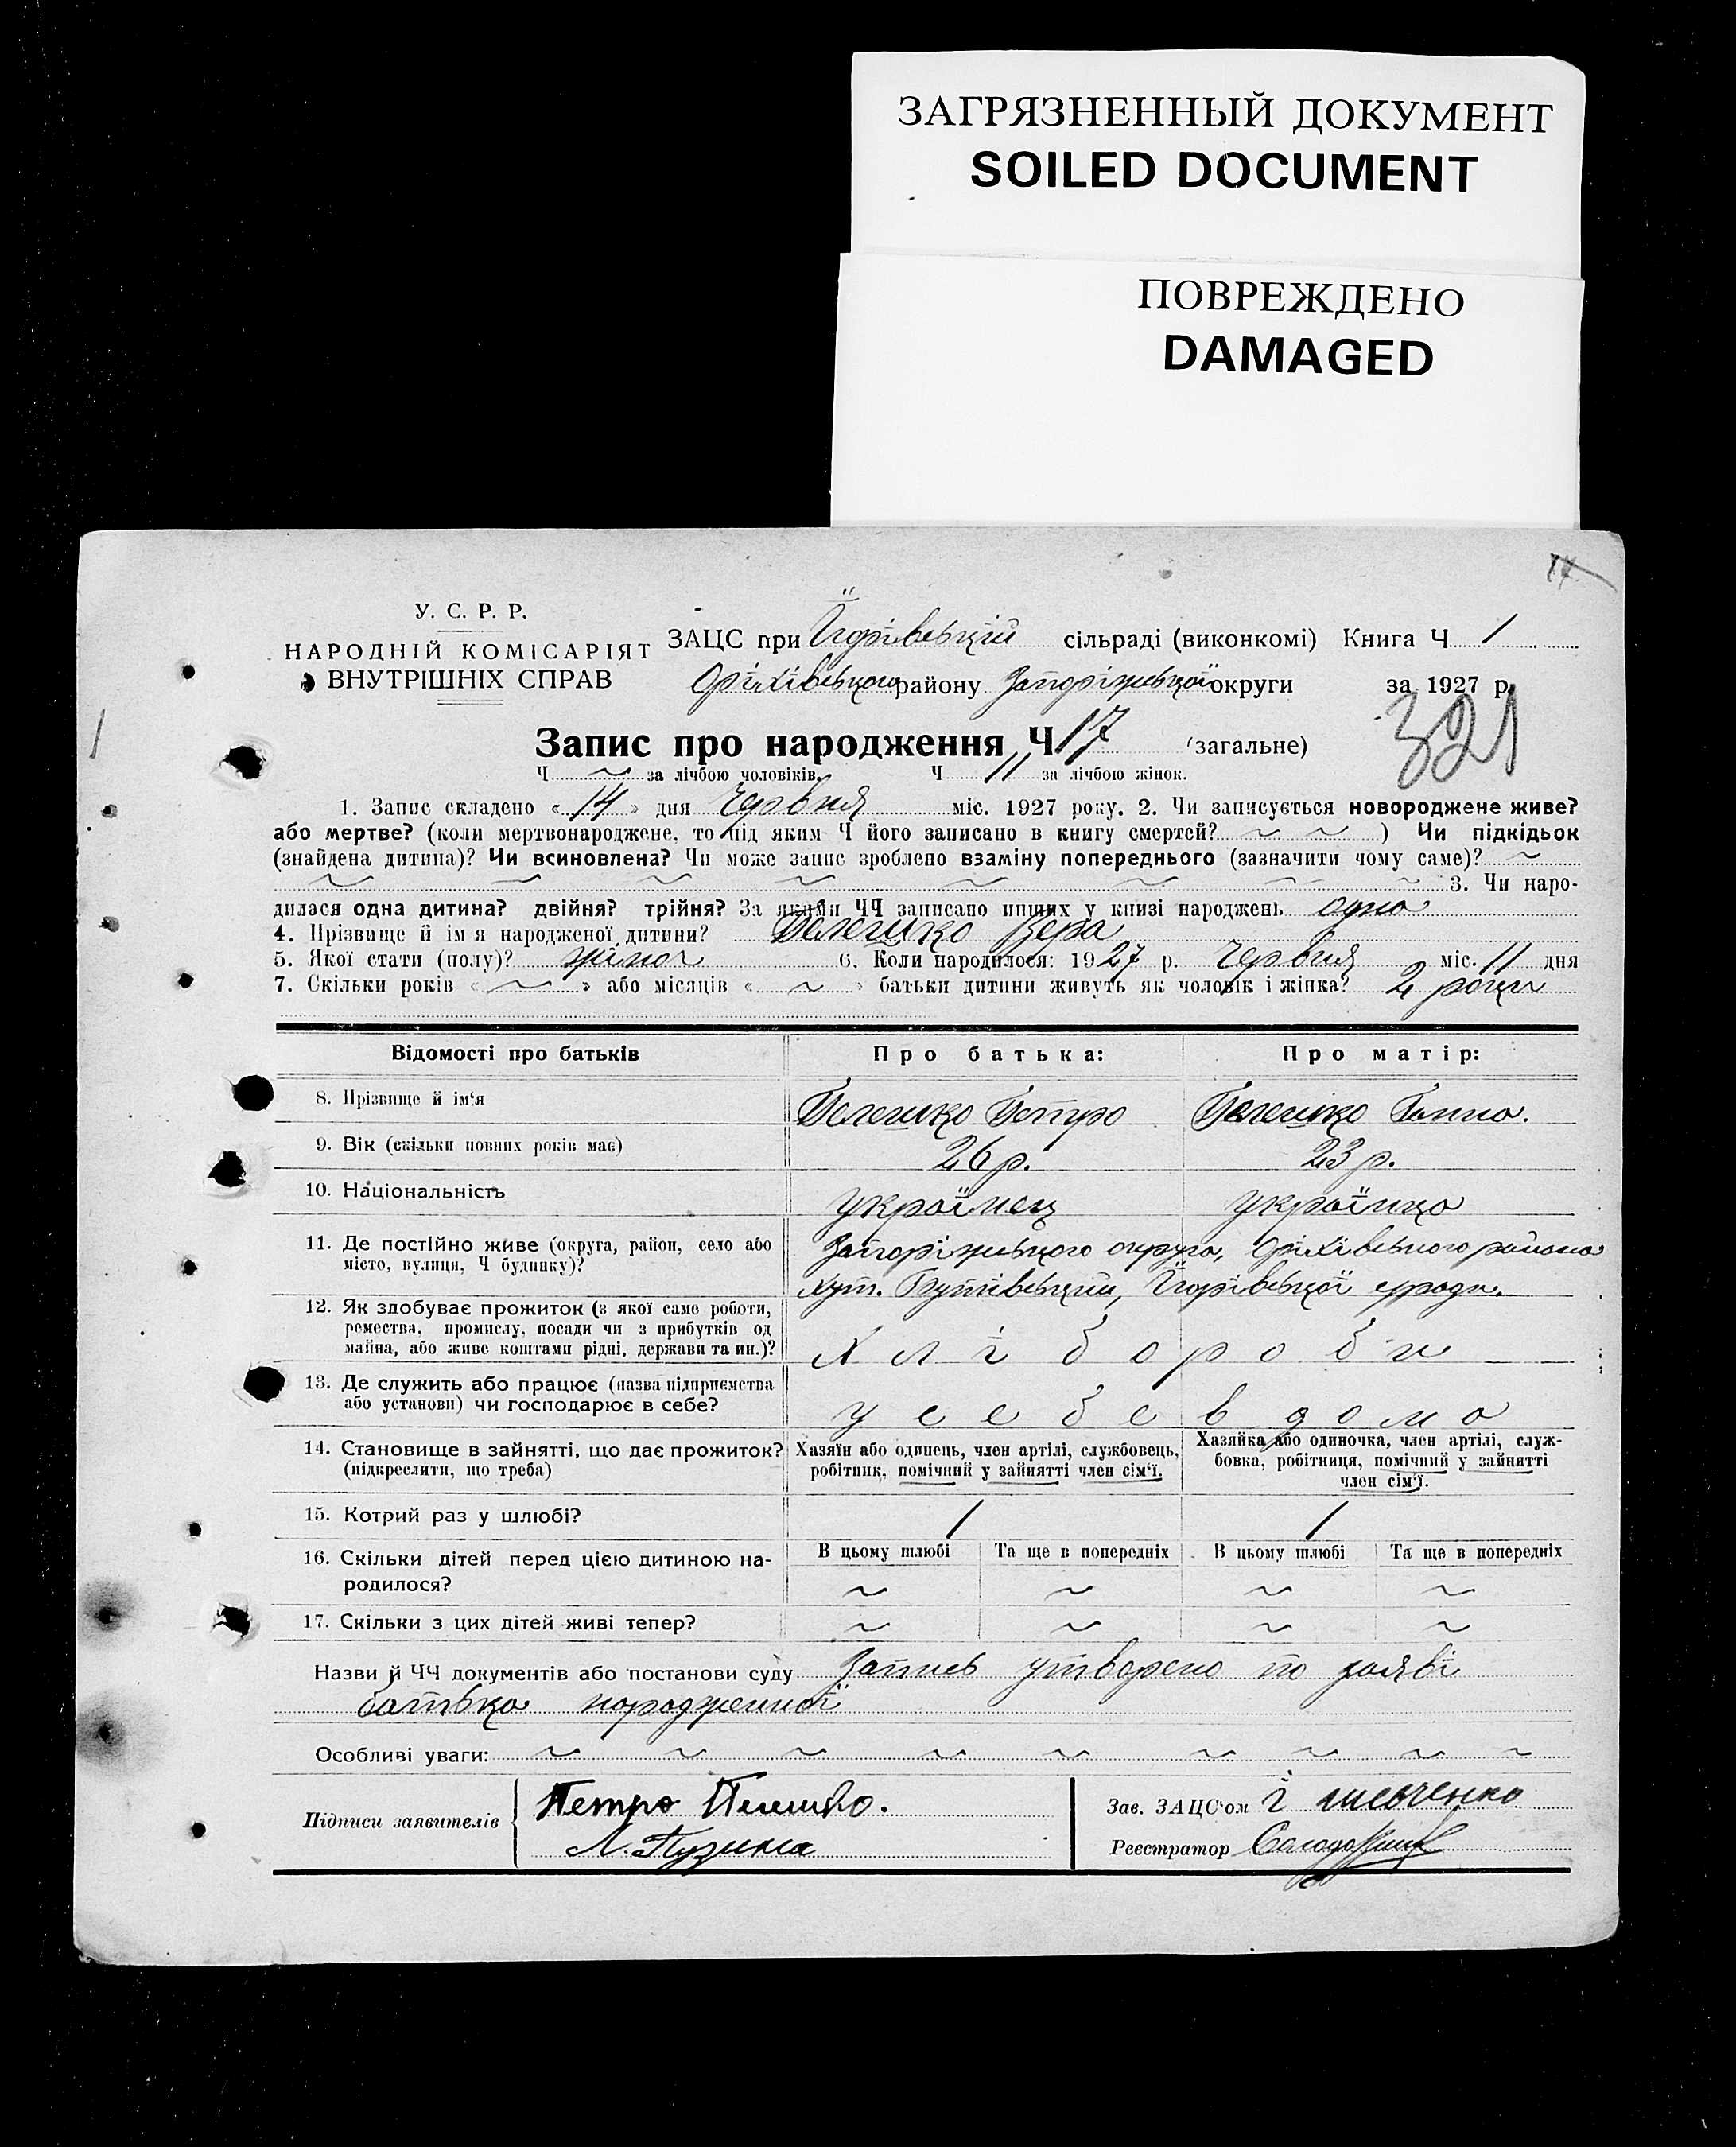 ЗАГРЯЗНЕННЫЙ ДОКУМЕНТ
SOILED DOCUMENT
ПОВРЕЖДЕНО
DAMAGED
У. С. Р. Р.
НАРОДНІЙ КОМІСАРІЯТ
ВНУТРІШНІХ СПРАВ
ЗАЦС при сільраді (виконкомі) Книга Ч 1
Оріхівського району Запоріжської округи за 1927 р.
321
Запис про народження Ч 17 (загальне)
Ч ~ за лічбою чоловіків. Ч 11 за лічбою жінок.
1. Запис складено « 14 » дня червня міс. 1927 року. 2. Чи записується новороджене живе?
або мертве? (коли мертвонароджене, то під яким Ч його записано в книгу смертей? ~ ~ ) Чи підкідьок
(знайдена дитина)? Чи всиновлена? Чи може запис зроблено взаміну попереднього (зазначити чому саме)? ~
~ ~ ~ ~ ~ ~ ~ ~ 3. Чи наро-
дилася одна дитина? двійня? трійня? За якими ЧЧ записано инших у книзі народжень одна
4. Прізвище й ім'я народженої дитини? Пелешко Вера
5. Якої стати (полу)? жіноч 6. Коли народилося: 1927 р. червня міс. 11 дня
7. Скільки років « ~ » або місяців « ~ » батьки дитини живуть як чоловік і жінка? 2 роки
Відомості про батьків Про батька: Про матір:
8. Прізвище й ім'я Пелешко Петро Пелешко Ганна.
9. Вік (скільки повних років має) 26 р. 23 р.
10. Національність українец українка
11. Де постійно живе (округа, район, село або
місто, вулиця, Ч будинку)?
Запоріжського округа, Оріхівського района
хут.
12. Як здобуває прожиток (з якої саме роботи,
ремества, промислу, посади чи з прибутків од
майна, або живе коштами рідні, держави та ин.)?
хлібороби
13. Де служить або працює (назва підприємства
або установи) чи господарює в себе?
у себе в дома
14. Становище в зайнятті, що дає прожиток?
(підкреслити, що треба)
Хазяїн або одинець, член артілі, службовець,
робітник, помічний у зайнятті член сім'ї.
Хазяйка або одиночка, член артілі, служ-
бовка, робітниця, помічний у зайнятті
член сім'ї.
15. Котрий раз у шлюбі? 1 1
16. Скільки дітей перед цією дитиною на-
родилося?
В цьому шлюбі Та ще в попередніх В цьому шлюбі Та ще в попередніх
~ ~ ~ ~
17. Скільки з цих дітей живі тепер? ~ ~ ~ ~
Назви й ЧЧ документів або постанови суду Запись утворено по заяві
батька народженної
Особливі уваги: ~ ~ ~ ~ ~ ~ ~ ~ ~
Підписи заявителів
Петро Пелешко.
Л. Пузина
Зав. ЗАЦС'ом
Реєстратор